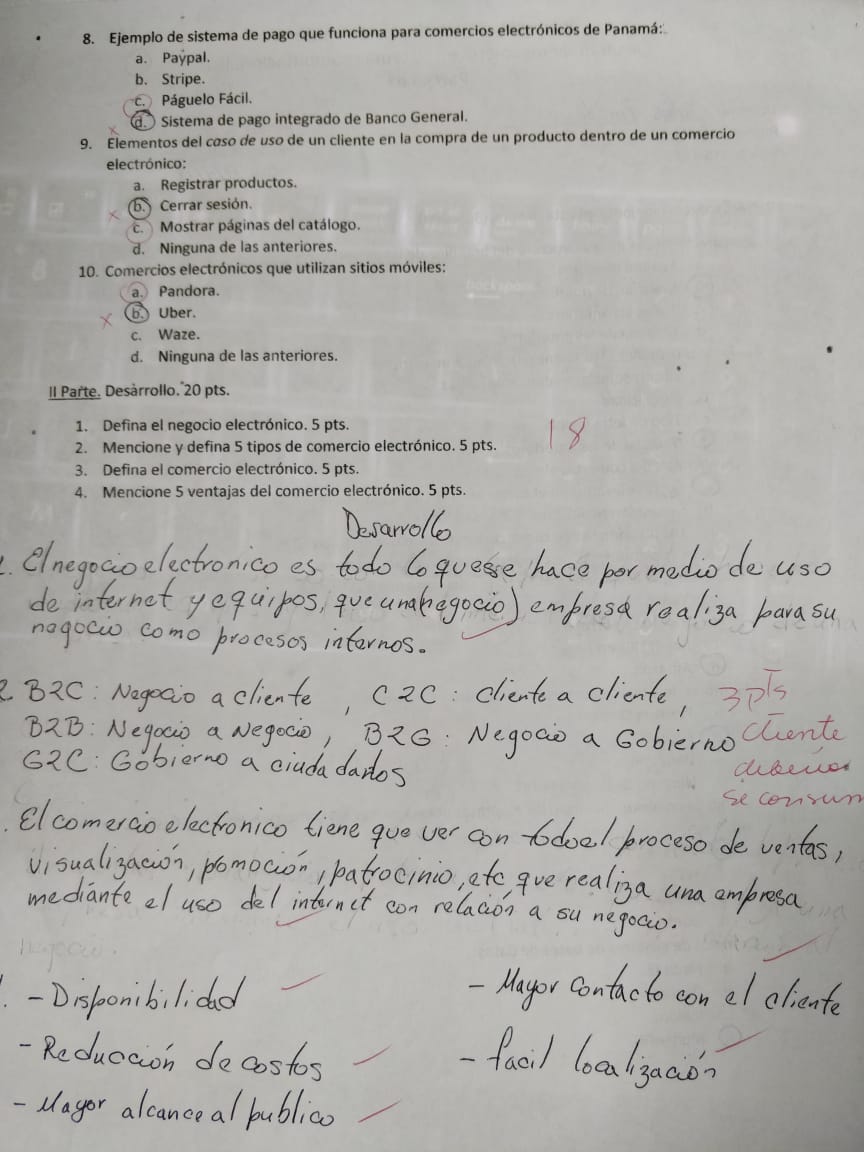 8. Ejemplo de sistema de pago que funciona para comercios electrónicos de Panamá:
a. Paypal.
b. Stripe.
c. Páguelo Fácil.
d. Sistema de pago integrado de Banco General.
9. Elementos del caso de uso de un cliente en la compra de un producto dentro de un comercio
electrónico:
a. Registrar productos.
b. Cerrar sesión.
c. Mostrar páginas del catálogo.
d. Ninguna de las anteriores.
10. Comercios electrónicos que utilizan sitios móviles:
a. Pandora.
b. Uber.
c. Waze.
d. Ninguna de las anteriores.
II Parte. Desarrollo. 20 pts.
1. Defina el negocio electrónico. 5 pts.
18
2. Mencione y defina 5 tipos de comercio electrónico. 5 pts.
3. Defina el comercio electrónico. 5 pts.
4. Mencione 5 ventajas del comercio electrónico. 5 pts.
Desarrollo
1. El negocio electronico es todo lo que se hace por medio de uso
de internet y equipos, que una (negocio) empresa realiza para su
negocio como procesos internos.
2. B2C: Negocio a cliente, C2C: cliente a cliente, 3 pts
B2B: Negocio a Negocio, B2G: Negocio a Gobierno cliente
G2C: Gobierno a ciudadanos
se consum
. El comercio electronico tiene que ver con todo el proceso de ventas,
visualización, pomoción, patrocinio, etc, que realiza una empresa
mediánte el uso del internet con relación a su negocio.
. - Disponibilidad - Mayor contacto con el cliente
- Reducción de costos - facil localización
- Mayor alcance al publico